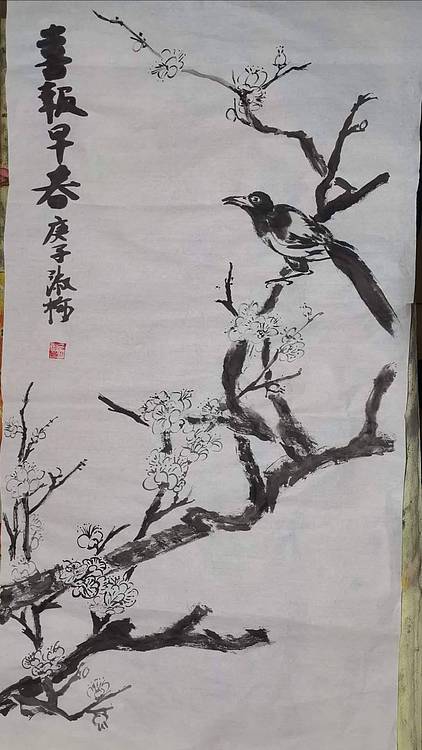 喜報早春
庚子淑梅